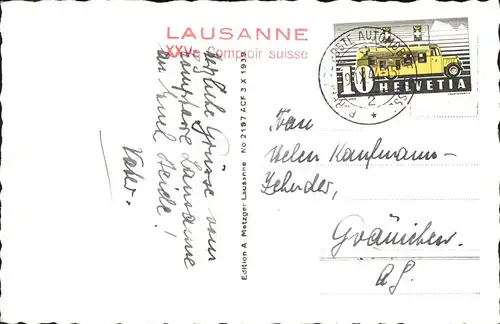 LAUSANNE
XXVe Comptoir suisse
Herzliche Grüsse vom
Comptoir Lausanne
an Euch Beide!
Vater.
Edition A. Metzger Lausanne No 2197 ACF 3.X.1939
POSTE AUTOMOBILE
2
10
HELVETIA
Frau
Helen Kaufmann-
Zehnder,
Gränichen
AG.